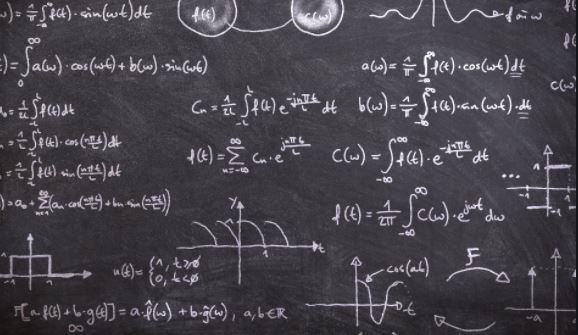 ω) = 1/π ∫ f(t) · sin(ωt) dt
f(t)
c(ω)
ω
) = ∫₀^∞ a(ω) · cos(ωt) + b(ω) · sin(ωt)
a(ω) = 1/π ∫_{-∞}^{∞} f(t) · cos(ωt) dt
c(ω
= 1/2L ∫_{-L}^{L} f(t) dt
Cₙ = 1/2L ∫_{-L}^{L} f(t) e^{-jnπt/L} dt
b(ω) = 1/π ∫_{-∞}^{∞} f(t) · sin(ωt) · dt
= 1/L ∫_{-L}^{L} f(t) · cos(nπt/L) dt
f(t) = ∑_{n=-∞}^{∞} Cₙ · e^{jnπt/L}
C(ω) = ∫_{-∞}^{∞} f(t) · e^{-jnπt/L} dt
= 1/L ∫_{-L}^{L} f(t) · sin(nπt/L) dt
...
1
-1
-1
) = a₀ + ∑_{n=1}^{∞} (aₙ · cos(nπt/L) + bₙ · sin(nπt/L))
f(t) = 1/2π ∫_{-∞}^{∞} C(ω) · e^{jωt} dω
y
1
t
u(t) = { 1, t≥0
0, t<0
cos(at)
t
F
-a
F[a · f(t) + b · g(t)] = a · f̂(ω) + b · ĝ(ω), a, b ∈ ℝ
∞